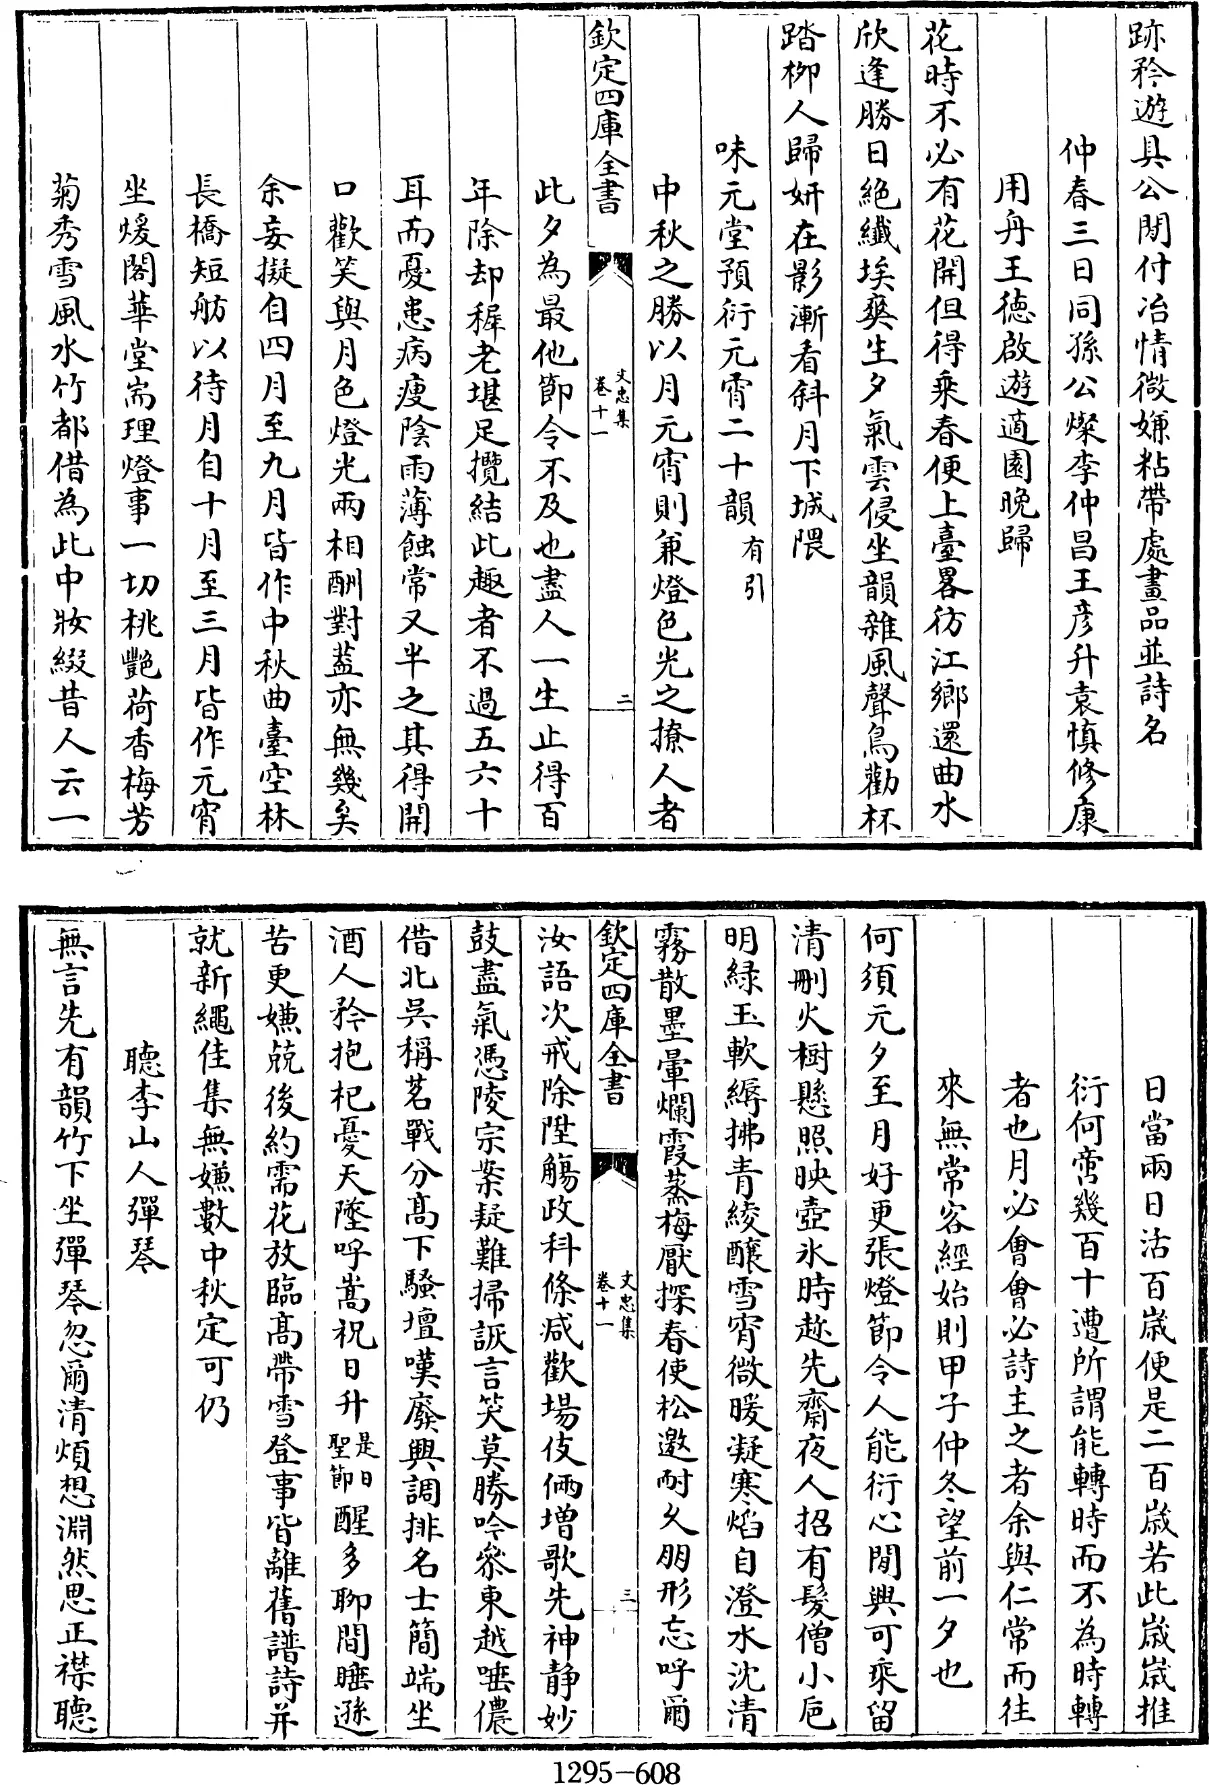 跡矜遊具公閒付冶情微嫌粘帶處畫品並詩名
仲春三日同孫公燦李仲昌王彦升袁慎修康
用舟王德啟遊適園晩歸
花時不必有花開但得乘春便上臺畧彷江鄉還曲水
欣逢勝日絶纖埃奕生夕氣雲侵坐韻雜風聲鳥勸杯
踏栁人歸妍在影漸看斜月下城隈
味元堂預衍元宵二十韻有引
中秋之勝以月元宵則兼燈色光之撩人者
欽定四庫全書
文忠集
卷十一
二
此夕為最他節令不及也盡人一生止得百
年除却穉老堪足攬結此趣者不過五六十
耳而憂患病瘦陰雨薄蝕常又半之其得開
口歡笑與月色燈光兩相酬對葢亦無幾矣
余妄擬自四月至九月皆作中秋曲臺空林
長橋短舫以待月自十月至三月皆作元宵
坐煖閣華堂耑理燈事一切桃艷荷香梅芳
菊秀雪風水竹都借為此中妝綴昔人云一
日當兩日沽百歲便是二百歲若此歲歲推
衍何啻幾百十遭所謂能轉時而不為時轉
者也月必會會必詩主之者余與仁常而往
來無常客經始則甲子仲冬望前一夕也
何須元夕至月好更張燈節令人能衍心閒興可乘留
清刪火樹懸照映壺氷時趂先齋夜人招有髮僧小巵
明緑玉軟縟拂青綾醸雪宵微暖凝寒焰自澄水沈清
霧散墨暈爛霞蒸梅厭探春使松邀耐久朋形忘呼爾
欽定四庫全書
文忠集
卷十一
三
汝語次戒除陞觴政科條减歡場伎倆增歌先神静妙
鼓盡氣憑陵宗案疑難掃詼言笑莫勝吟叅東越唾儂
借北吳稱茗戰分髙下騷壇嘆廢興調排名士簡端坐
酒人矜抱杞憂天墜呼嵩祝日升是日聖節醒多聊間睡遜
苦更嫌兢後約需花放臨髙帶雪登事皆離舊譜詩并
就新繩佳集無嫌數中秋定可仍
聽李山人彈琴
無言先有韻竹下坐彈琴忽爾清煩想淵然思正襟聽
1295-608